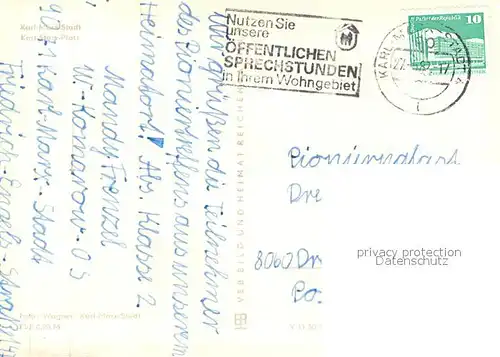 Karl-Marx-Stadt
Karl-Marx-Platz
Nutzen Sie
unsere
ÖFFENTLICHEN
SPRECHSTUNDEN
in Ihrem Wohngebiet
10
KARL-MARX-STADT
Wir grüßen die Teilnehmer
des Pioniertreffens aus unserem
Heimatort! Abs. Klasse 2
Mandy Frenzel
W.-Komarow-OS
90.. Karl-Marx-Stadt
Friedrich-Engels-Straße
VEB BILD UND HEIMAT REICHENBACH
Dre
8060 Dr
Po
privacy protection
Datenschutz
Foto: Wagner, Karl-Marx-Stadt